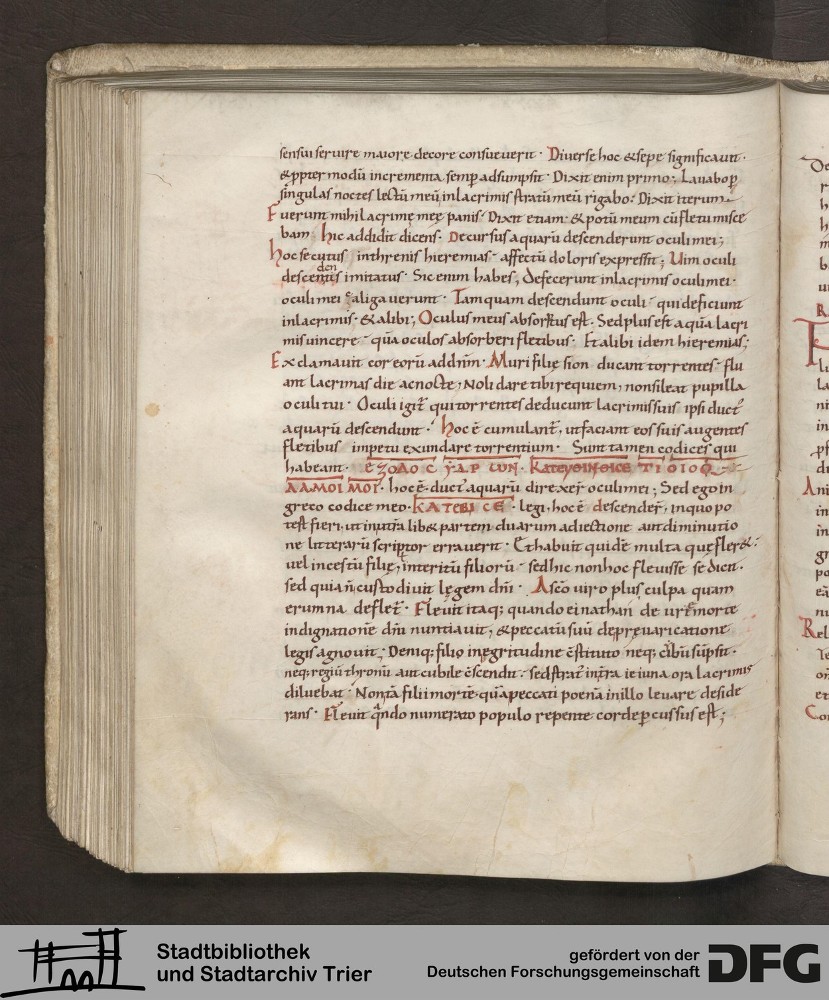 sensui seruire maiore decore consueuerit · Diuerse hoc &sepe significauit ·
&ppter modū incrementa semp adsumpsit · Dixit enim primo; Lauabo p
singulas noctes lectū meū inlacrimis stratū meū rigabo; Dixit iterum
Fuerunt mihi lacrimę meę panis · Dixit etiam · &potū meum cū fletu misce
bam · hic addidit dicens · Decursus aquarū descenderunt oculi mei;
hoc secutus inthrenis hieremias · affectū doloris expressit; Uim oculi
den
descentis imitatus · Sic enim habes; Defecerunt inlacrimis oculi mei ·
oculi mei caligauerunt · Tamquam descendunt oculi qui deficiunt
inlacrimis · &alibi; Oculus meus absorptus est · Sed plus est aqua lacri
mis uincere qua oculos absorberi fletibus · Et alibi idem hieremias;
Exclamauit cor eorū ad dn̄m · Muri filię sion ducant torrentes flu
ant lacrimas die ac nocte; Noli dare tibi requiem, non sileat pupilla
oculi tui · Oculi igit̄ qui torrentes deducunt lacrimis suis ipsi duct
aquarū descendunt · hoc ē cumulant, ut faciant eos suis augentes
fletibus impetu exundare torrentium · Sunt tamen codices qui
habeant · ΕΞΟΔΟC ΥΔΡ ΙѠΝ · ΚΑΤΕΥΘΙΝΘΙCΕ ΤΙ ΟΙΟΦ
ΛΑΜΟΙ ΜΟΙ · hoc ē · duct aquarū direxer oculi mei; Sed ego in
greco codice meo · ΚΑΤΕΒΙCΕ · legi, hoc ē descender, in quo po
test fieri, ut in utra lib& partem duarum adiectione aut diminutio
ne litterarū scriptor errauerit · Et habuit quidē multa quę fler& ·
uel incestū filię, interitū filiorū · sed hic non hoc fleuisse se dicit ·
sed quia n̄ custodiuit legem dn̄i · A sc̄o uiro plus culpa quam
erumna deflet · Fleuit itaq; quando ei nathan de urię morte
indignationē dn̄i nuntiauit, &peccatū suū de preuaricatione
legis agnouit; Deniq; filio in egritudine c̄stituto neq; cibū sūpsit ·
neq; regiū thronū aut cubile c̄scendit · sed strat in terra ieiuna ora lacrimis
diluebat · Non tā filii morte quā peccati poenā in illo leuare deside
rans · Fleuit qn̄do numerato populo repente corde pcussus est;
Stadtbibliothek
und Stadtarchiv Trier
gefördert von der
Deutschen Forschungsgemeinschaft
DFG